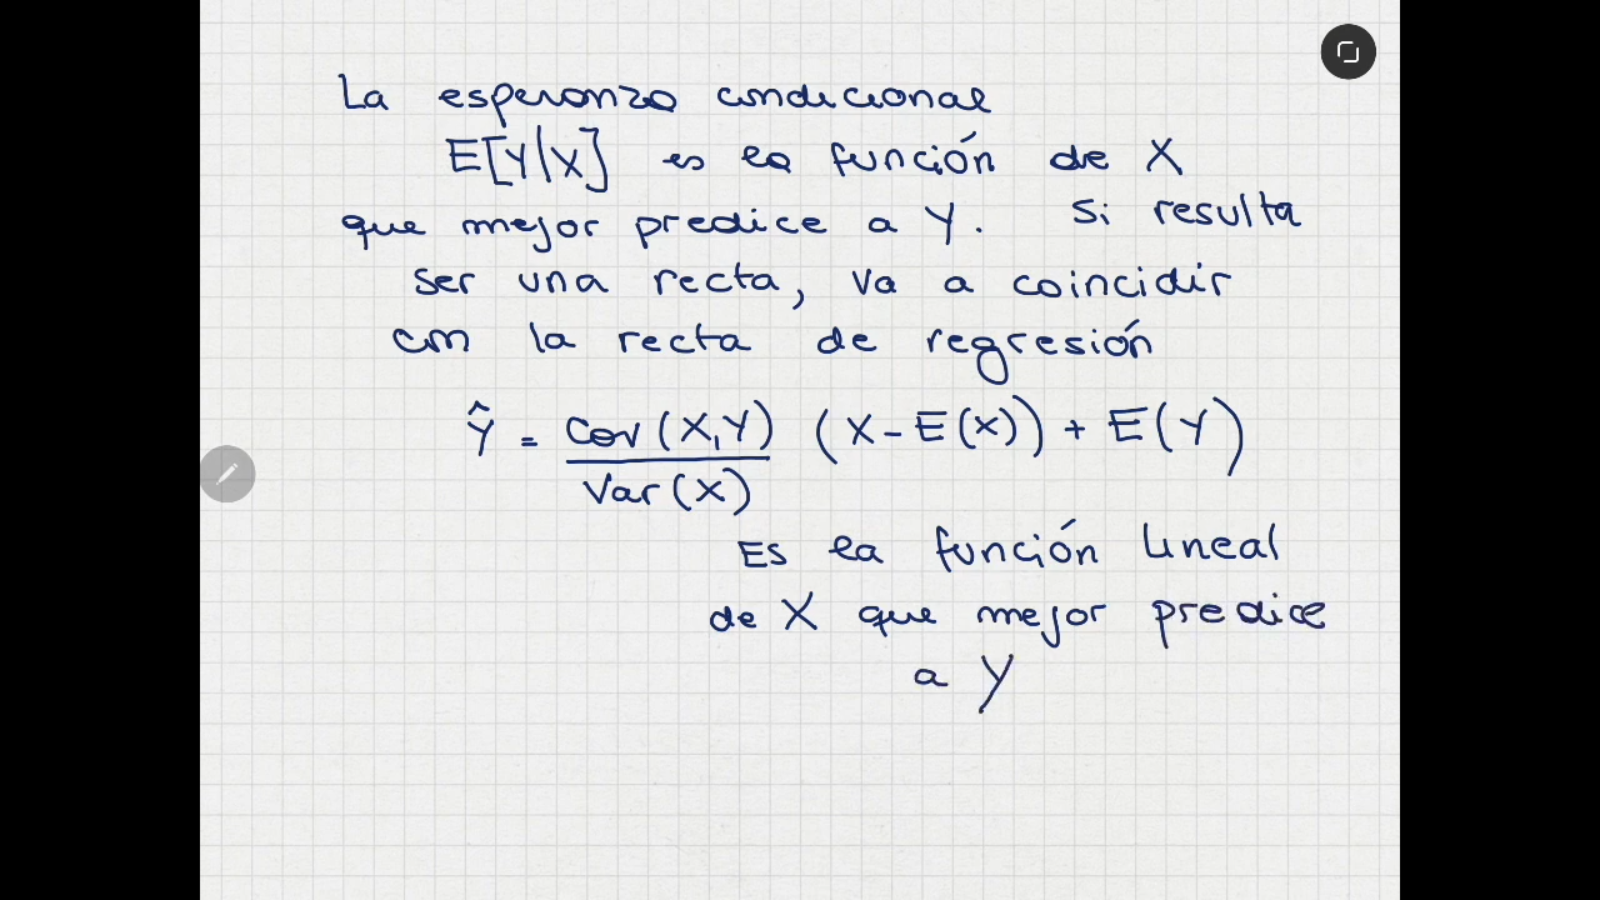 La esperanza condicional
E[Y|X] es la función de X
que mejor predice a Y. Si resulta
ser una recta, va a coincidir
con la recta de regresión
Ŷ = Cov(X,Y)/Var(X) (X-E(X)) + E(Y)
Es la función lineal
de X que mejor predice
a Y